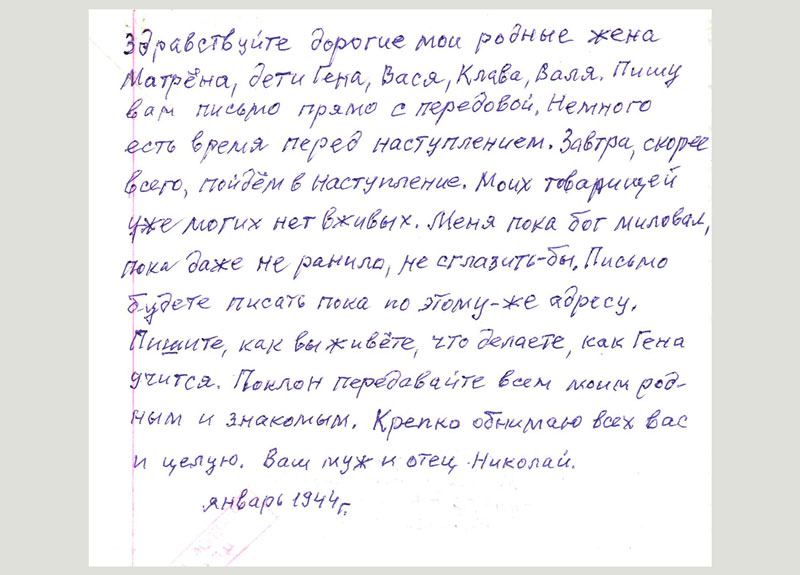 Здравствуйте дорогие мои родные жена
Матрёна, дети Гена, Вася, Клава, Валя. Пишу
вам письмо прямо с передовой. Немного
есть время перед наступлением. Завтра, скорее
всего, пойдём в наступление. Моих товарищей
уже могих нет вживых. Меня пока бог миловал,
пока даже не ранило, не сглазить-бы. Письмо
будете писать пока по этому-же адресу.
Пишите, как вы живёте, что делаете, как Гена
учится. Поклон передавайте всем моим род-
ным и знакомым. Крепко обнимаю всех вас
и целую. Ваш муж и отец Николай.
январь 1944 г.